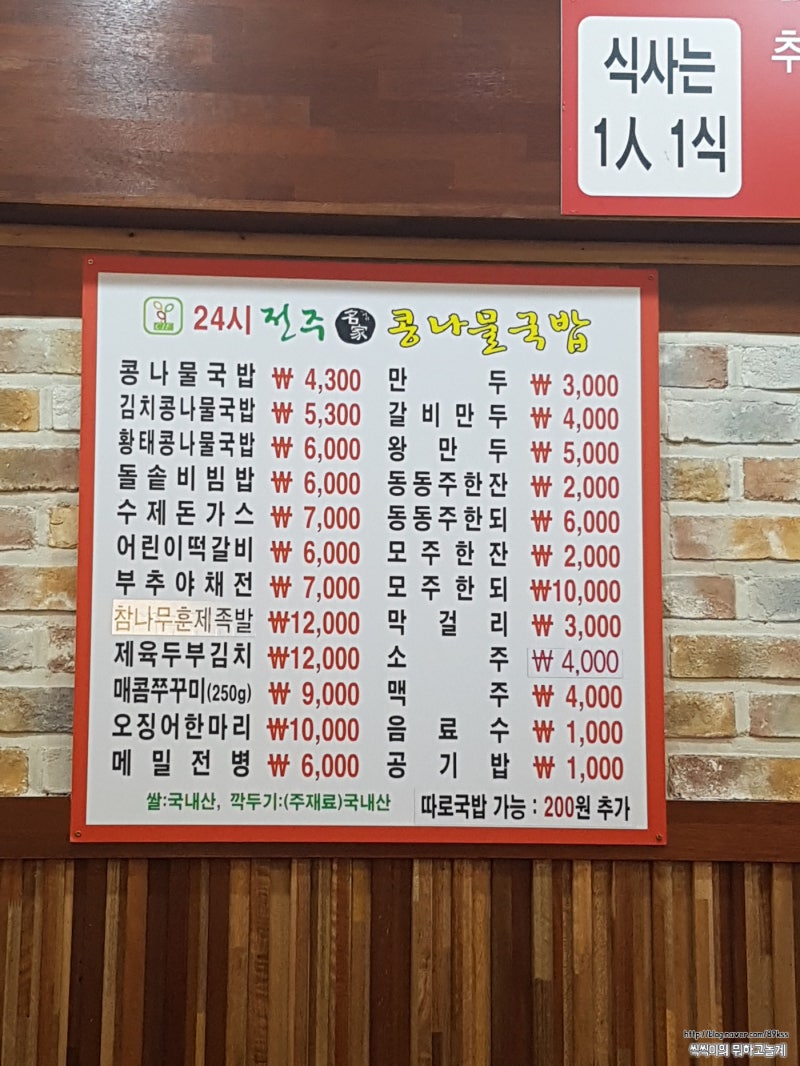 추
식사는
1人 1식
24시 전주 名家 콩나물국밥
콩나물국밥 ₩ 4,300
김치콩나물국밥 ₩ 5,300
황태콩나물국밥 ₩ 6,000
돌솥비빔밥 ₩ 6,000
수제돈가스 ₩ 7,000
어린이떡갈비 ₩ 6,000
부추야채전 ₩ 7,000
참나무훈제족발 ₩12,000
제육두부김치 ₩12,000
매콤쭈꾸미(250g) ₩ 9,000
오징어한마리 ₩10,000
메밀전병 ₩ 6,000
만두 ₩ 3,000
갈비만두 ₩ 4,000
왕만두 ₩ 5,000
동동주한잔 ₩ 2,000
동동주한되 ₩ 6,000
모주한잔 ₩ 2,000
모주한되 ₩10,000
막걸리 ₩ 3,000
소주 ₩ 4,000
맥주 ₩ 4,000
음료수 ₩ 1,000
공기밥 ₩ 1,000
쌀:국내산, 깍두기:(주재료)국내산
따로국밥 가능 : 200원 추가
http://blog.naver.com/89kss
씩씩이의 뭐하고놀게